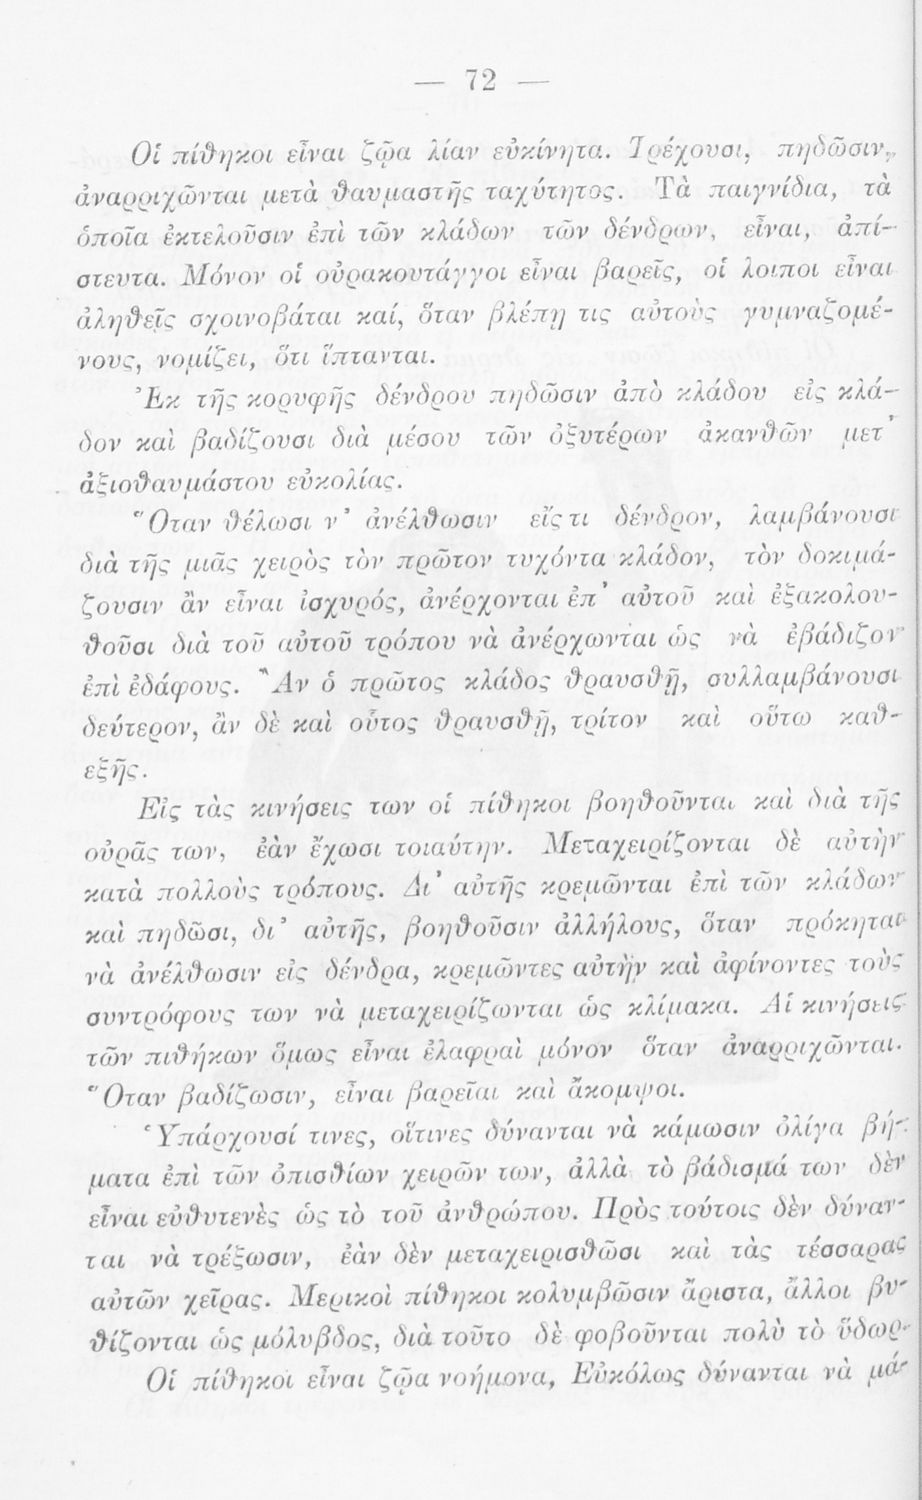 — 72 —
Οἱ πίθηκοι εἶναι ζῷα λίαν εὐκίνητα. Τρέχουσι, πηδῶσιν,
ἀναρριχῶνται μετὰ θαυμαστῆς ταχύτητος. Τὰ παιγνίδια, τὰ
ὁποῖα ἐκτελοῦσιν ἐπὶ τῶν κλάδων τῶν δένδρων, εἶναι, ἀπί-
στευτα. Μόνον οἱ οὐρακουτάγγοι εἶναι βαρεῖς, οἱ λοιποι εἶναι
ἀληθεῖς σχοινοβάται καί, ὅταν βλέπῃ τις αὐτοὺς γυμναζομέ-
νους, νομίζει, ὅτι ἵπτανται.
Ἐκ τῆς κορυφῆς δένδρου πηδῶσιν ἀπὸ κλάδου εἰς κλά-
δον καὶ βαδίζουσι διὰ μέσου τῶν ὀξυτέρων ἀκανθῶν μετ᾽
ἀξιοθαυμάστου εὐκολίας.
Ὅταν θέλωσι ν᾽ ἀνέλθωσιν εἴς τι δένδρον, λαμβάνουσι
διὰ τῆς μιᾶς χειρὸς τὸν πρῶτον τυχόντα κλάδον, τὸν δοκιμά-
ζουσιν ἂν εἶναι ἰσχυρός, ἀνέρχονται ἐπ᾽ αὐτοῦ καὶ ἐξακολου-
θοῦσι διὰ τοῦ αὐτοῦ τρόπου νὰ ἀνέρχωνται ὡς νὰ ἐβάδιζον
ἐπὶ ἐδάφους. Ἂν ὁ πρῶτος κλάδος θραυσθῇ, συλλαμβάνουσι
δεύτερον, ἂν δὲ καὶ οὗτος θραυσθῇ, τρίτον καὶ οὕτω καθ-
εξῆς.
Εἰς τὰς κινήσεις των οἱ πίθηκοι βοηθοῦνται καὶ διὰ τῆς
οὐρᾶς των, ἐὰν ἔχωσι τοιαύτην. Μεταχειρίζονται δὲ αὐτὴν
κατὰ πολλοὺς τρόπους. Δι᾽ αὐτῆς κρεμῶνται ἐπὶ τῶν κλάδων
καὶ πηδῶσι, δι᾽ αὐτῆς, βοηθοῦσιν ἀλλήλους, ὅταν πρόκηται
νὰ ἀνέλθωσιν εἰς δένδρα, κρεμῶντες αὐτὴν καὶ ἀφίνοντες τοὺς
συντρόφους των νὰ μεταχειρίζωνται ὡς κλίμακα. Αἱ κινήσεις
τῶν πιθήκων ὅμως εἶναι ἐλαφραὶ μόνον ὅταν ἀναρριχῶνται.
Ὅταν βαδίζωσιν, εἶναι βαρεῖαι καὶ ἄκομψοι.
Ὑπάρχουσί τινες, οἵτινες δύνανται νὰ κάμωσιν ὀλίγα βή-
ματα ἐπὶ τῶν ὀπισθίων χειρῶν των, ἀλλὰ τὸ βάδισμά των δὲν
εἶναι εὐθυτενὲς ὡς τὸ τοῦ ἀνθρώπου. Πρὸς τούτοις δὲν δύναν-
ται νὰ τρέξωσιν, ἐὰν δὲν μεταχειρισθῶσι καὶ τὰς τέσσαρας
αὐτῶν χεῖρας. Μερικοὶ πίθηκοι κολυμβῶσιν ἄριστα, ἄλλοι βυ-
θίζονται ὡς μόλυβδος, διὰ τοῦτο δὲ φοβοῦνται πολὺ τὸ ὕδωρ.
Οἱ πίθηκοι εἶναι ζῷα νοήμονα, Εὐκόλως δύνανται νὰ μά-